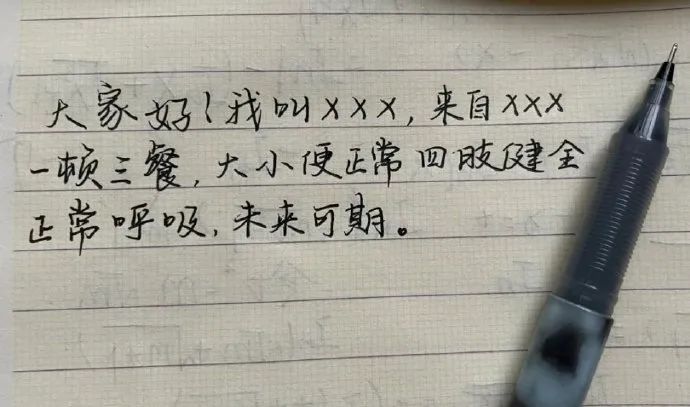 大家好！我叫XXX，来自XXX
一顿三餐，大小便正常四肢健全
正常呼吸，未来可期。